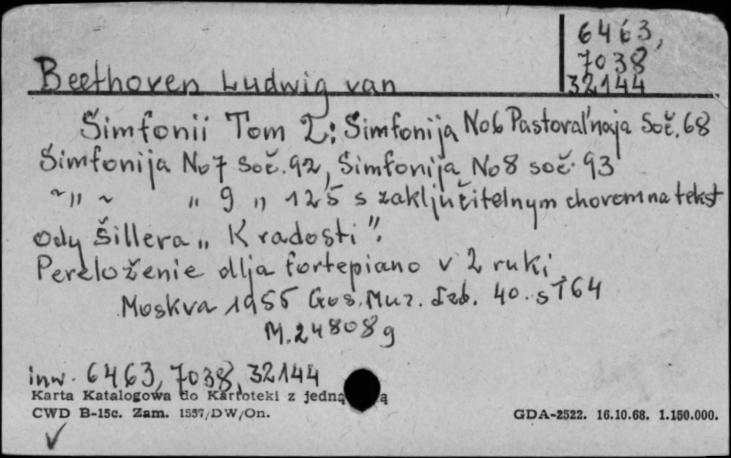 6463,
7038,
32144
Beethoven Ludwig van
Simfonii Tom 2: Simfonija No6 Pastoral'naja Soč. 68
Simfonija No7 Soč. 92, Simfonija No8 soč. 93
~ " ~ " 9 " 125 s zaključitelnym chorom na tekst
ody Šillera „ K radosti".
Pereloženie dlja fortepiano v 2 ruki
Moskva 1955 Gos. Muz. Izd. 40. s 164
M. 24808 g
inw. 6463, 7038, 32144
Karta Katalogowa do Kartoteki z jedną
CWD B-15c. Zam. 1557/DW/On.
GDA-2522. 16.10.68. 1.150.000.